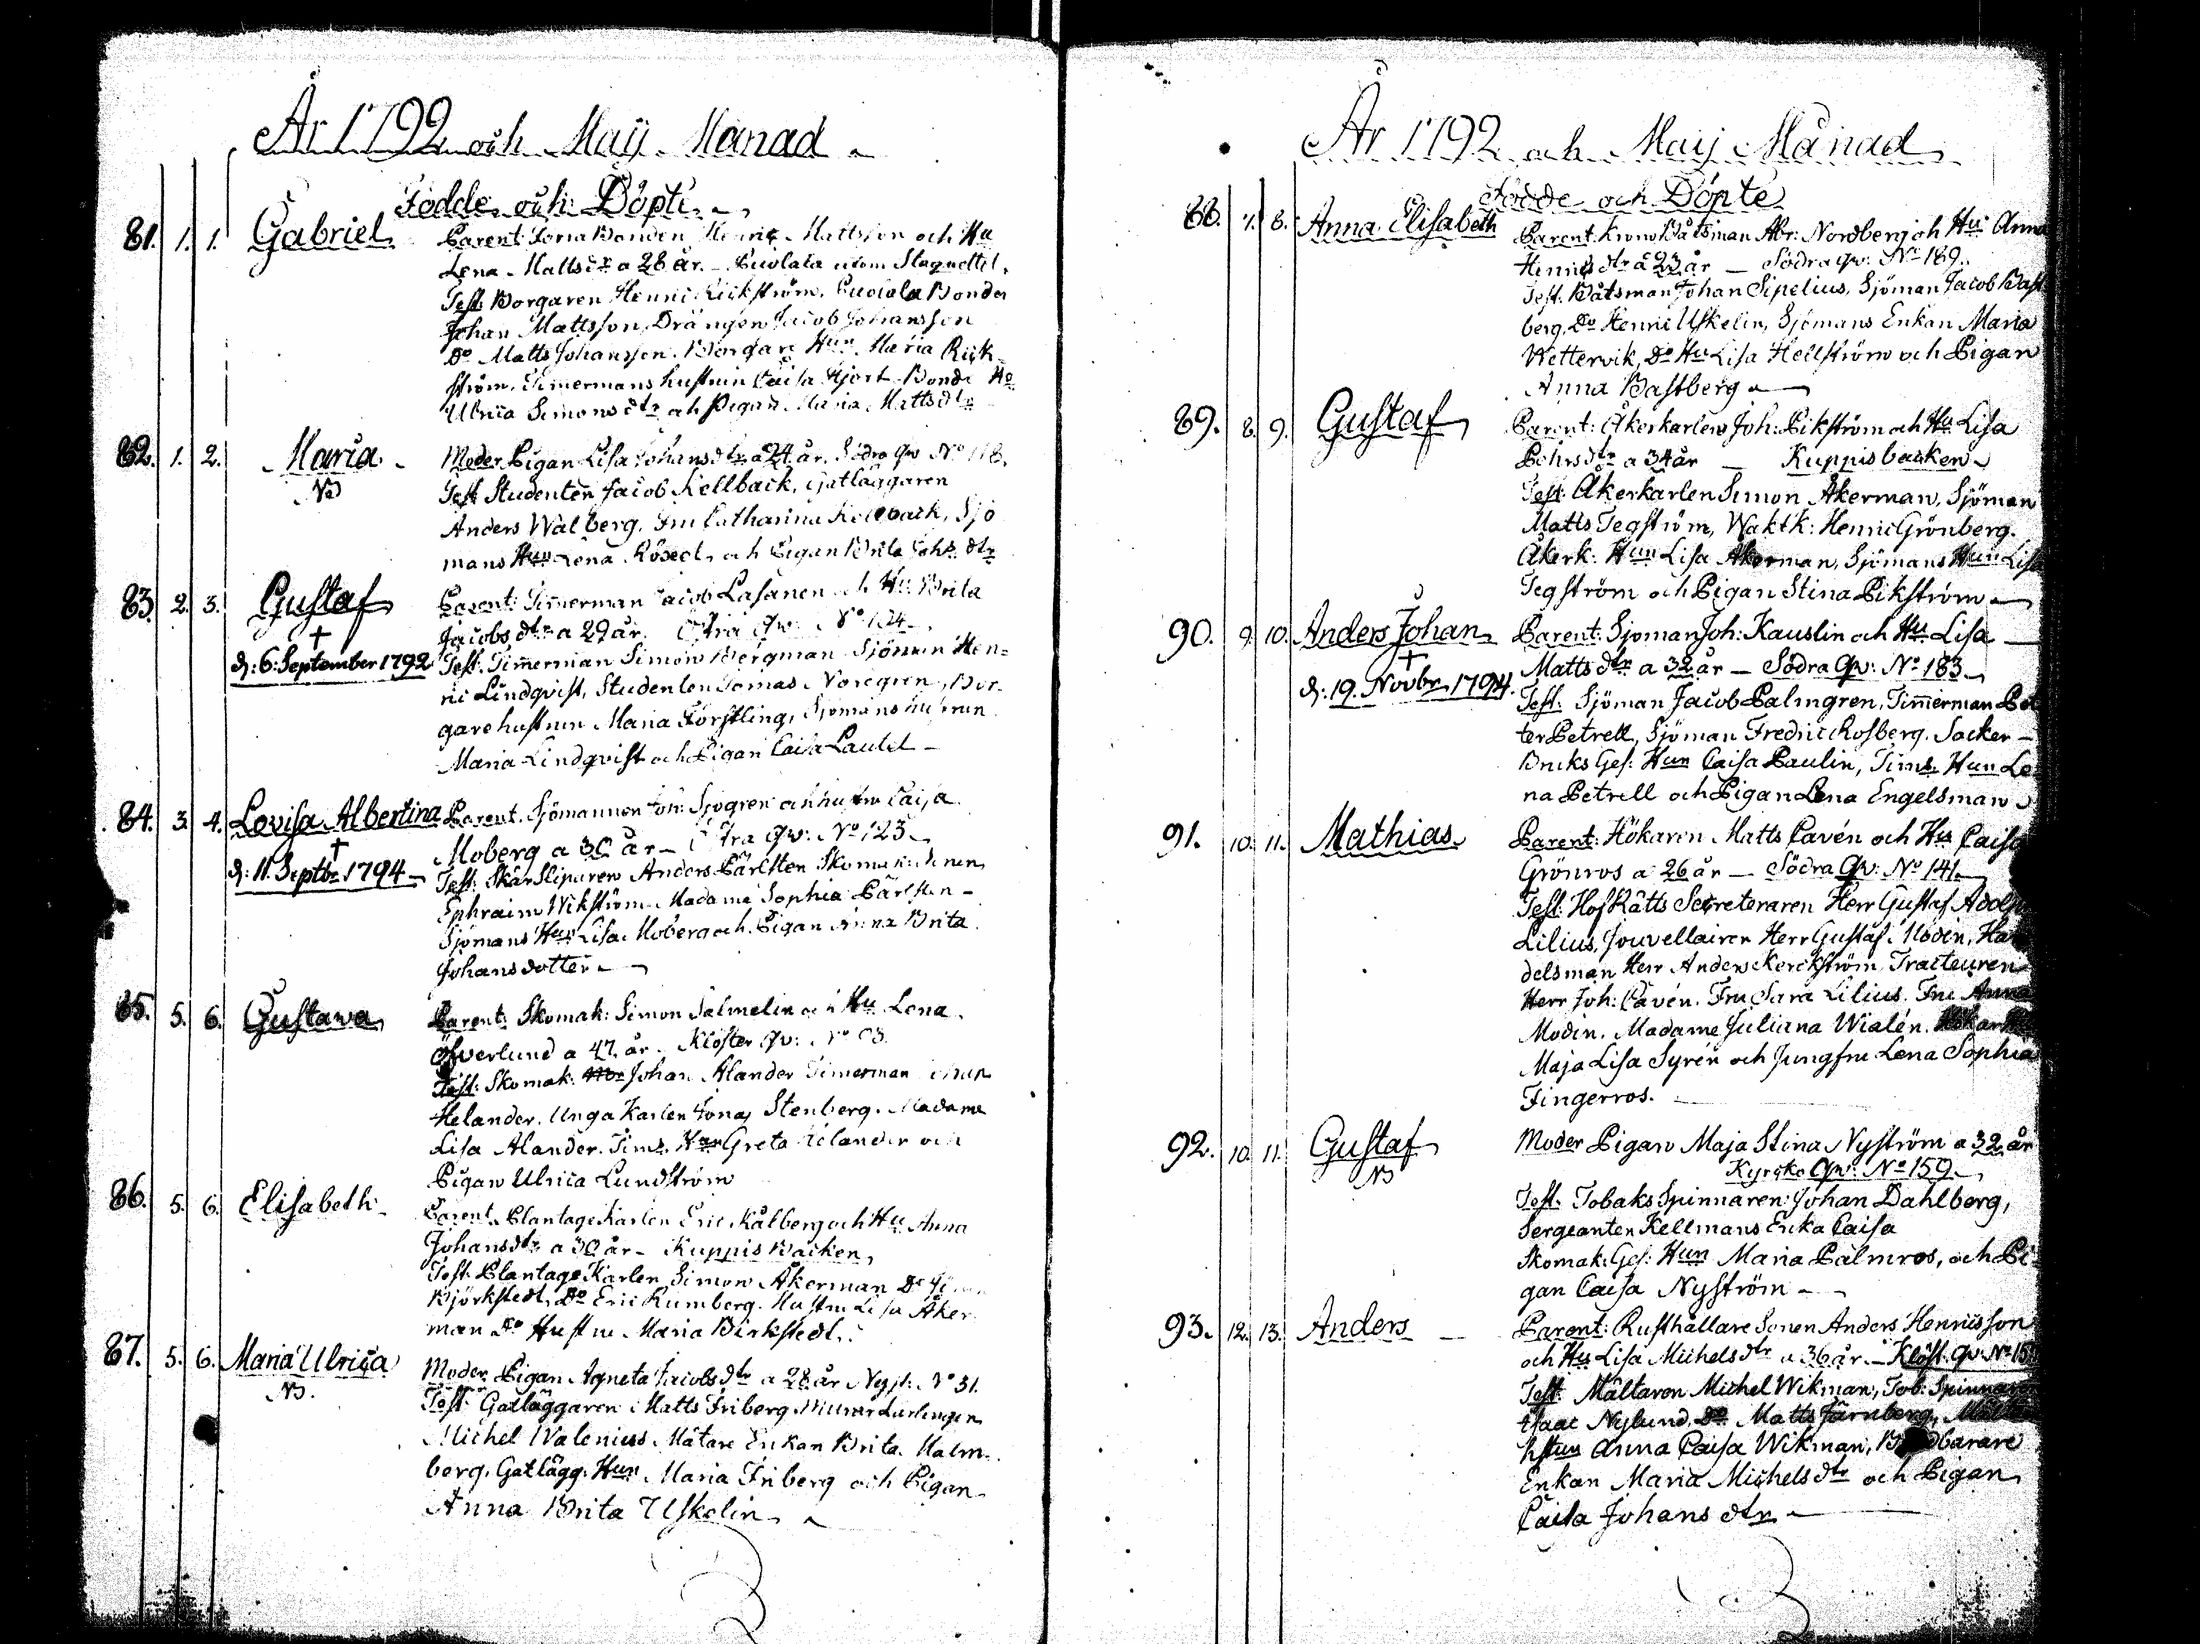 År 1792 och Maij Månad
Födde och Döpte
81. 1. 1. Gabriel Parent: Torra Bonden Henric Mattsson och Hu
Lena Matts dr a 28 år. utom Slagnettet.
Test. Borgaren Henric Rickström. Bonden
Johan Mattsson, Drängen Jacob Johansson
Do Matts Johansson. Borgare Hun Maria Rick-
ström. Timermans hustrun Caisa Hjort Bonde Ho
Ulrica Simons dtr och Pigan Maria Matts dtr
82. 1. 2. Maria Moder Pigan Lisa Johans dtr a 24 år. Södra qv No 118.
NB Test Studenten Jacob Kellback, Gatläggaren
Anders Walberg. Fru Catharina Kellback, Sjö
mans Hun Lena och Pigan Brita Johs dtr
83. 2. 3. Gustaf Parent: Timerman Jacob Lasanen och Hu: Brita
Jacobs dtr a 29 år. Östra qv: No 124
† d: 6: September 1792 Test. Timerman Simon Bergman Sjöman Hen=
ric Lindqvist, Studenten Tomas Noregren, Bor-
gare hustrun Maria Förstling, Sjömans hustrun
Maria Lindqvist och Pigan Caisa Lautel
84. 3. 4. Lovisa Albertina Parent. Sjömannen Joh: Sjögren och hustru Caisa
Moberg a 30 år - Östra qv: No 123
† d: 11. Septbr 1794 Test: Skärsliparen Anders Pärlsten Skomakaren
Ephraim Wikström Madame Sophia Pärlsten -
Sjömans Hun Lisa Moberg och Pigan Anna Brita
Johansdotter
85. 5. 6. Gustava Parent: Skomak: Simon Salmelin och Hu Lena
Öfverlund a 47 år. Kloster qv: No
Test: Skomak: Johan Alander Timerman
Helander. Unga Karlen Jonas Stenberg. Madame
Lisa Alander. Tims. Hun Greta Helander och
Pigan Ulrica Lundström
86. 5. 6. Elisabeth Parent. Plantage Karlen Eric Kålberg och Hu Anna
Johans dtr a 30 år - Kuppis Backen
Test. Plantage Karlen Simon Åkerman Do
Björkstedt, Do Eric Rumberg. Hustru Lisa Åker
man Do Hustru Maria Birkstedt.
87. 5. 6. Maria Ulrica Moder Pigan Agneta Jacobs dtr a 28 år Nyst: No 31.
NB. Test: Gatläggaren Matts Friberg Murar Lärlingen
Michel Walenius Mätare Enkan Brita Malm-
berg. Gatlägg: Hun Maria Friberg och Pigan
Anna Brita Uskelin
År 1792 och Maij Månad
Födde och Döpte
88. 7. 8. Anna Elisabeth Parent. Krono Båtsman Abr: Nordberg och Hu: Anna
Henrics dtr a 23 år — Södra qv: No 189.
Test. Båtsman Johan Sipelius, Sjöman Jacob Bast
berg, Do Henric Uskelin, Sjömans Enkan Maria
Wettervik, Do Hu Lisa Hellström och Pigan
Anna Bastberg
89. 8. 9. Gustaf Parent: Åkerkarlen Joh: Pikström och Hu Lisa
Pehrs dtr a 34 år — Kuppis backen
Test: Åkerkarlen Simon Åkerman, Sjöman
Matts Tegström, Waktk: Henric Grönberg.
Åkerk: Hun Lisa Åkerman, Sjömans Hun Lisa
Tegström och Pigan Stina Pikström
90. 9. 10. Anders Johan Parent: Sjöman Joh: Kauslin och Hu Lisa
Matts dtr a 32 år — Södra Qv: No 183
† d: 19. Novbr 1794. Test: Sjöman Jacob Palmgren, Timerman Pet
ter Petrell, Sjöman Fredric Rosberg. Socker
Bruks Ges: Hun Caisa Paulin, Tims. Hun Le
na Petrell och Pigan Lena Engelsman
91. 10. 11. Mathias Parent: Hökaren Matts Pavén och Hu Caisa
Grönros a 26 år — Södra Qv: No 141
Test: Hof Rätts Secreteraren Herr Gustaf Adolp
Lilius, Jouvellairen Herr Gustaf Modin, Han
delsman Herr Anders Kerckström, Tracteuren
Herr Joh: Pavén. Fru Sara Lilius. Fru Anna
Modin. Madame Juliana Wialén.
Maja Lisa Syrén och Jungfru Lena Sophia
Fingerros.
92. 10. 11. Gustaf Moder Pigan Maja Stina Nyström a 32 år
NB Kyrcko Qv: No 159
Test. Tobaks Spinnaren: Johan Dahlberg,
Sergeanten Kellmans Enka Caisa
Skomak: Ges: Hun Maria Palmros, och Pi
gan Caisa Nyström
93. 12. 13. Anders Parent: Rusthållare Sonen Anders Henricsson
och Hu Lisa Michels dtr a 36 år. — Klöst: Qv: No 15
Test. Mältaren Michel Wikman, Tob: Spinnaren
Isaac Nylund. Do Matts Järnberg,
hstun Anna Caisa Wikman,
Enkan Maria Michels dtr och Pigan
Caisa Johans dtr